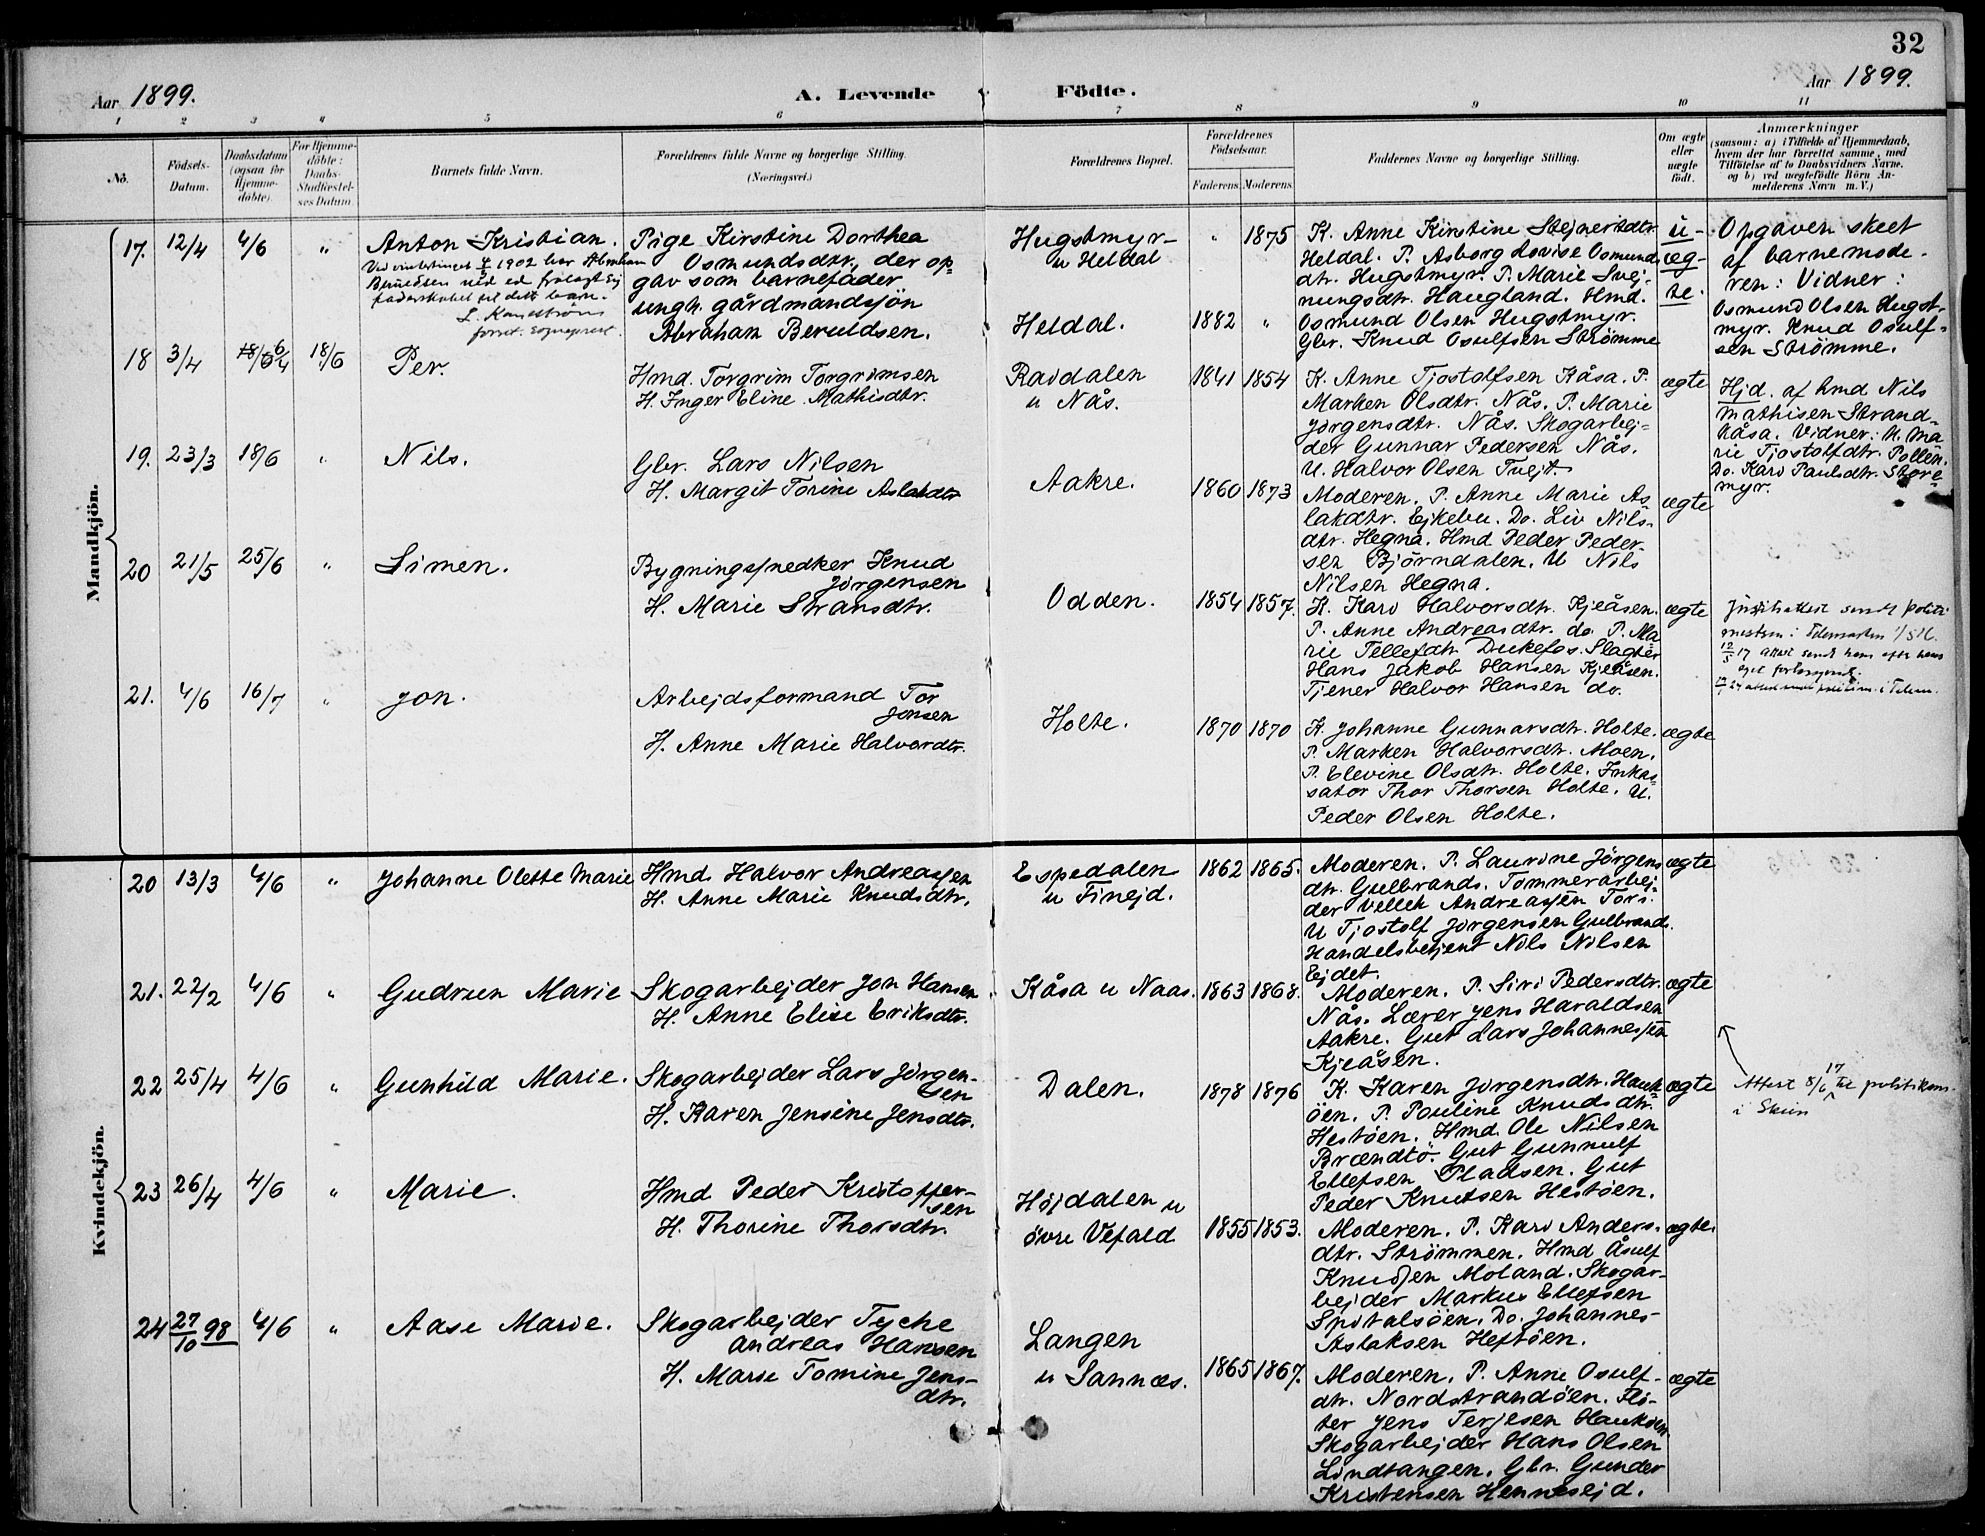 32
Aar 1899.
A. Levende Födte.
Aar 1899.
1 2 3 4 5 6 7 8 9 10 11
No.
Födsels-Datum.
Daabsdatum (ogsaa for Hjemme-döbte).
For Hjemme-döbte: Daabs-Stadfæstel-ses Datum
Barnets fulde Navn.
Forældrenes fulde Navne og borgerlige Stilling. (Næringsvei.)
Forældrenes Bopæl.
Forældrenes Födselsaar.
Faderens Moderens
Faddernes Navne og borgerlige Stilling.
Om ægte eller uægte födt.
Anmærkninger
(saasom: a) i Tilfælde af Hjemmedaab,
hvem der har forrettet samme, med
Tilföielse af to Daabsvidners Navne.
og b) ved uægtefödte Börn An-
melderens Navn m. V.)
Mandkjön.
17. 12/4 4/6 "
Anton Kristian.
1902 har Abraham
Beruldsen
faderskabet til dette barn.
Pige Kirstine Dorthea
Osmundsdtr., der op-
gav som barnefader
ungk. gårdmandssön
Abraham Beruldsen.
Hugstmyr
u Heldal
Heldal.
" 1875
1882 "
K. Anne Kirstine Stejnertdtr
Heldal. P. Asborg Lovise Osmund
dtr. Hugstmyr. P. Marie Svej-
nungsdtr. Haugland. Hmd.
Osmund Olsen Hugstmyr.
Gbr. Knud Osulfsen Strømme
u-
æg-
te.
Opgaven skeet
af barnemode-
ren: Vidner:
Osmund Olsen Hugst-
myr. Knud Osulf-
sen Strömme.
18 3/4 18/6
Per.
Hmd. Torgrim Torgrimsen
H. Inger Eline Mathisdtr.
Raudalen
u Nås.
1841 1854
K. Anne Tjostolfsen Kåsa. P.
Marken Olsdtr. Nås. P. Marie
Jörgensdtr. Nås. Skogarbej-
der Gunnar Pedersen Nås.
U. Halvor Olsen Tvejt.
ægte
Hjd. af hmd Nils
Mathisen Strand-
kåsa. Vidner: K. Ma
rie Tjostolfdtr. Pollen.
Do. Kari Paulsdtr. Store-
myr.
19. 23/3 18/6 "
Nils.
Gbr. Lars Nilsen
H. Margit Torine Aslakdtr
Aakre.
1860 1873
Moderen. P. Anne Marie As
lakdtr. Ejkebu. Do. Liv Nils-
dtr. Hegna. Hmd Peder Peder-
sen Björndalen. U Nils
Nilsen Hegna.
ægte
20 21/5 25/6 "
Simen.
Bygningssnedker Knud
Jörgensen
H. Marie Svansdtr.
Odden.
1854 1857.
K. Kari Halvorsdtr. Kjeåsen.
P. Anne Andreasdtr. do. P. Ma
rie Tellefdtr Dukefos. Slagter
Hans Jakob Hansen Kjeåsen.
Tjener Halvor Hansen do.
ægte
sendt politi
mesteren i Telemarken
12/5 17 attest sendt ham efter hans
eget forlangende.
21. 4/6 16/7 "
Jon.
Arbejdsformand Tor
Jonsen
H. Anne Marie Halvordtr.
Holte.
1870 1870
K. Johanne Gunnarsdtr. Holte.
P. Marken Halvorsdtr. Moen.
P. Elevine Olsdtr. Holte. Inkas-
sator Thor Thorsen Holte. U.
Peder Olsen Holte.
ægte
Kvindekjön.
20 13/3 4/6 "
Johanne Olette Marie
Hmd. Halvor Andreassen
H. Anne Marie Knudsdtr.
Espedalen
u Finejd.
1862 1865.
Moderen. P. Laurine Jörgens
dtr. Gulbrands. Tömmerarbej-
der Vellek Andreassen Tors.
U Tjostolf Jörgensen Gulbrands.
Handelsbetjent Nils Nilsen
Ejdet.
ægte
21. 22/2 4/6 "
Gudrun Marie
Skogarbejder Jon Hansen
H. Anne Elise Eriksdtr.
Kåsa u Naas.
1863 1868.
Moderen. P. Siri Pedersdtr.
Nås. Lærer Jens Haraldsen
Aakre. Gut Lars Johannessen
Kjeåsen.
ægte
22 25/4 4/6 "
Gunhild Marie.
Skogarbejder Lars Jörgen-
sen
H. Karen Jensine Jensdtr.
Dalen.
1878 1876
K. Karen Jorgensdtr. Hauk
öen. P. Pauline Knudsdtr.
Hestöen. Hmd. Ole Nilsen
Brændtö. Gut Gunnulf
Ellefsen Pladsen. Gut
Peder Knutsen Hestöen.
ægte
Attest 8/6 17 til politikam.
i Skien
23 26/4 4/6 "
Marie.
Hmd Peder Kristoffer-
sen
H. Thorine Thorsdtr.
Höjdalen u
övre Vefald
1855 1853.
Moderen. P. Kari Anders-
dtr. Strömmen. Hmd Åsulf
Knudsen Moland. Skogar-
bejder Markus Ellefsen
Spitalsöen. Do. Johannes
Aslaksen Heftöen.
ægte.
24 27/10 98 4/6 "
Aase Marie.
Skogarbejder Tyche
Andreas Hansen
H. Marie Tomine Jens-
dtr.
Langen
u Sannæs.
1865 1867.
Moderen. P. Anne Osulf-
dtr. Nordstrandöen. Flö-
ter Jens Terjesen Hauköen
Skogarbejder Hans Olsen
Lindtangen. Gbr. Gunder
Kristensen Hennesejd.
ægte